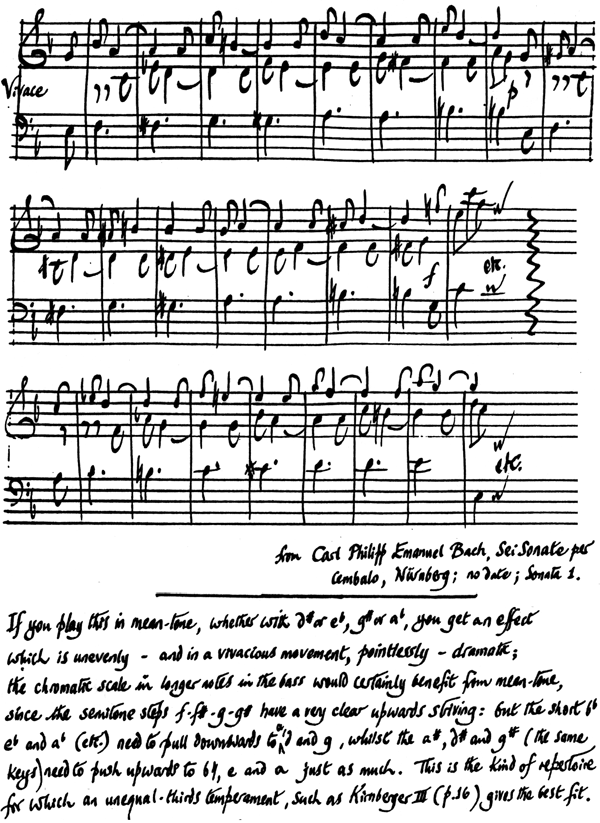 Vivace
p
f
etc.
etc.
from Carl Philipp Emanuel Bach, Sei Sonate per
Cembalo, Nürnberg; no date; Sonata 1.
If you play this in mean-tone, whether with d# or e♭, g# or a♭, you get an effect
which is unevenly - and in a vivacious movement, pointlessly - dramatic;
the chromatic scale in longer notes in the bass would certainly benefit from mean-tone,
since the semitone steps f-f#-g-g# have a very clear upwards striving: but the short b♭
e♭ and a♭ (etc.) need to pull downwards to a, d and g, whilst the a#, d# and g# (the same
keys) need to push upwards to b♮, e and a just as much. This is the kind of repertoire
for which an unequal-thirds temperament, such as Kirnberger III gives the best fit.